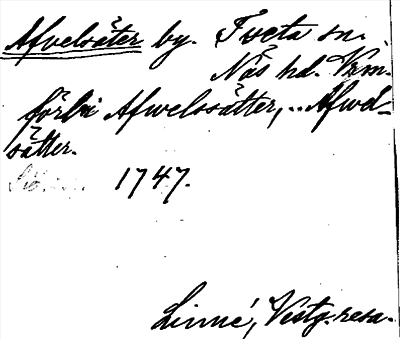 Afvelsäter by. Tveta sn.
Näs hd. Vrm.
förbi Afwelssätter, .. Afwel-
sätter.
1747.
Linné, Västg. resa.